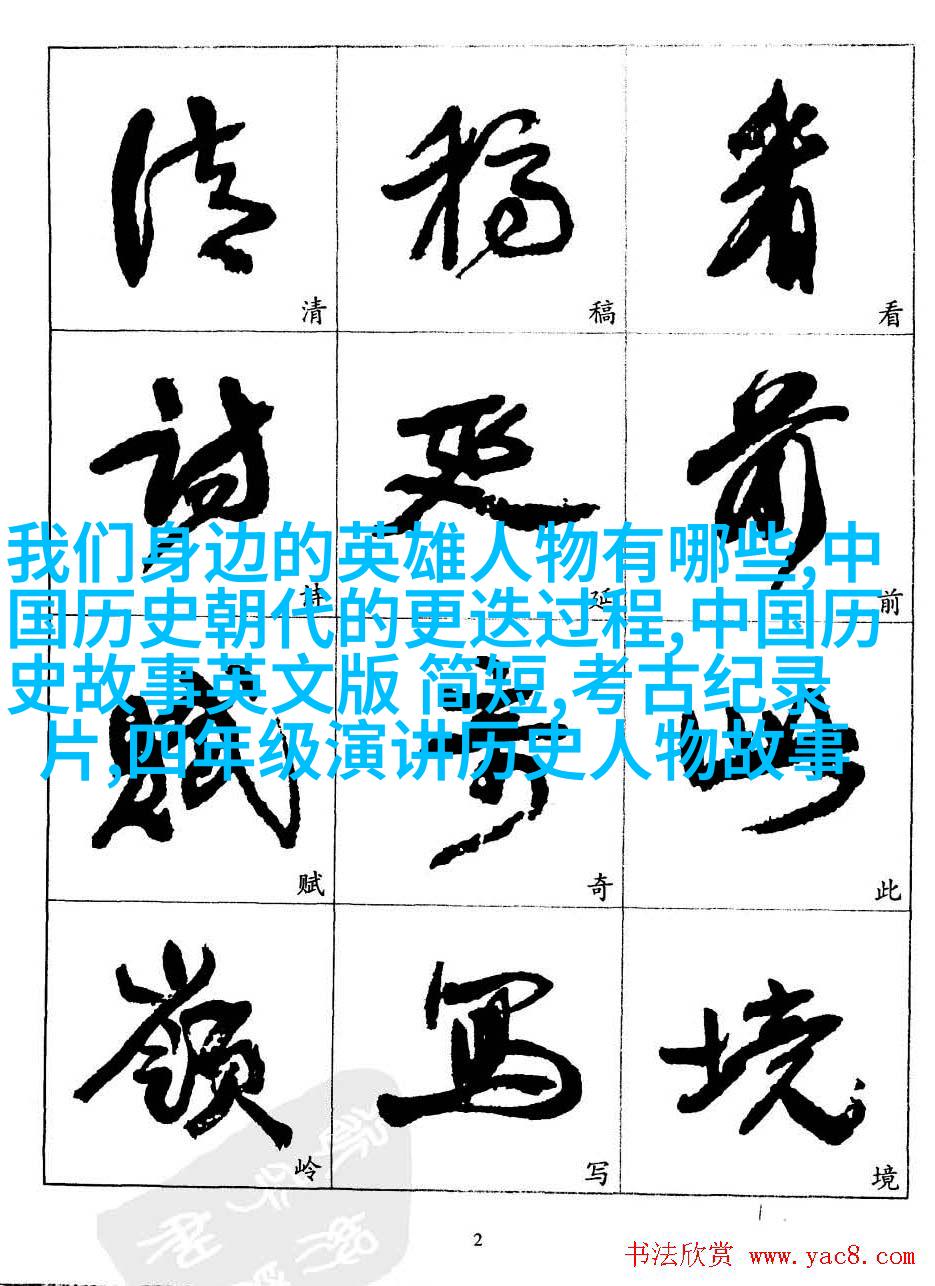 清 稿 看
诗 延 前
我们身边的英雄人物有哪些,中
国历史朝代的更迭过程,中国历
史故事英文版 简短,考古纪录
片,四年级演讲历史人物故事
赋 奇 此
岭 写 境
2
书法欣赏 www.yac8.com